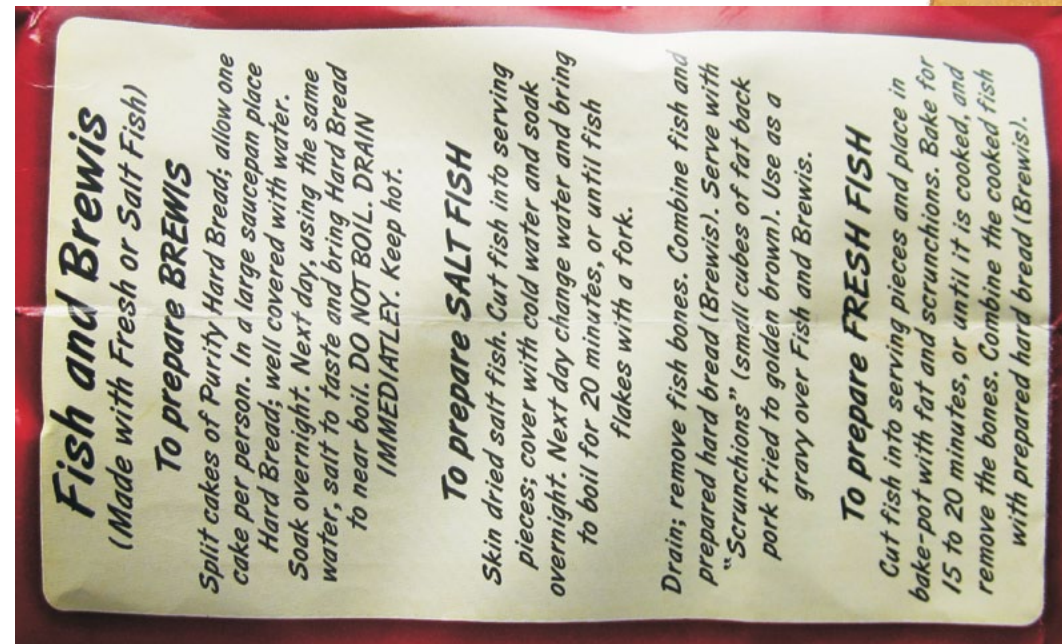 Fish and Brewis
(Made with Fresh or Salt Fish)
To prepare BREWIS
Split cakes of Purity Hard Bread; allow one
cake per person. In a large saucepan place
Hard Bread; well covered with water.
Soak overnight. Next day, using the same
water, salt to taste and bring Hard Bread
to near boil. DO NOT BOIL. DRAIN
IMMEDIATLEY. Keep hot.
To prepare SALT FISH
Skin dried salt fish. Cut fish into serving
pieces; cover with cold water and soak
overnight. Next day change water and bring
to boil for 20 minutes, or until fish
flakes with a fork.
Drain; remove fish bones. Combine fish and
prepared hard bread (Brewis). Serve with
"Scrunchions" (small cubes of fat back
pork fried to golden brown). Use as a
gravy over Fish and Brewis.
To prepare FRESH FISH
Cut fish into serving pieces and place in
bake-pot with fat and scrunchions. Bake for
15 to 20 minutes, or until it is cooked, and
remove the bones. Combine the cooked fish
with prepared hard bread (Brewis).